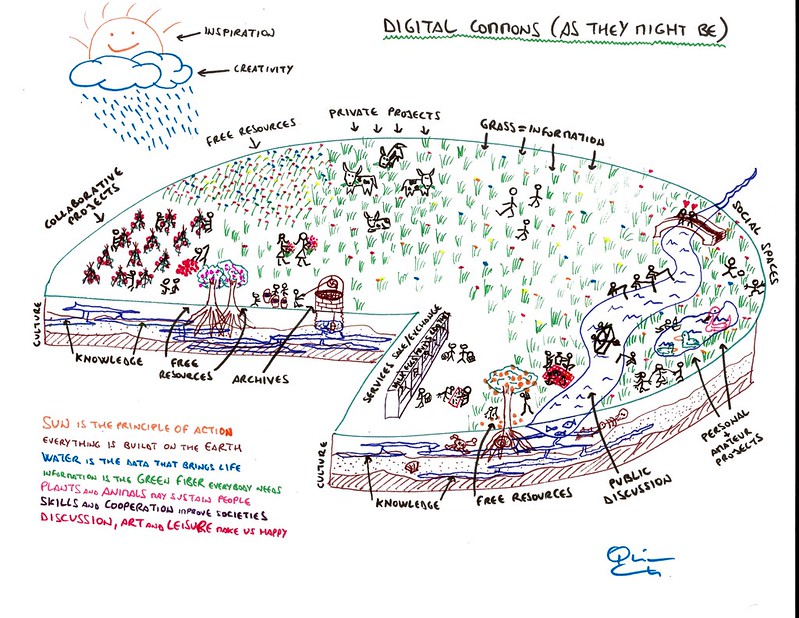 DIGITAL COMMONS (AS THEY MIGHT BE)
INSPIRATION
CREATIVITY
PRIVATE PROJECTS
FREE RESOURCES
GRASS = INFORMATION
COLLABORATIVE
PROJECTS
SOCIAL SPACES
CULTURE
KNOWLEDGE
FREE
RESOURCES
ARCHIVES
SERVICES SALE/EXCHANGE
CULTURE
KNOWLEDGE
FREE RESOURCES
PUBLIC
DISCUSSION
PERSONAL
+
AMATEUR
PROJECTS
SUN IS THE PRINCIPLE OF ACTION
EVERYTHING IS BUILDT ON THE EARTH
WATER IS THE DATA THAT BRINGS LIFE
INFORMATION IS THE GREEN FIBER EVERYBODY NEEDS
PLANTS AND ANIMALS MAY SUSTAIN PEOPLE
SKILLS AND COOPERATION IMPROVE SOCIETIES
DISCUSSION, ART AND LEISURE MAKE US HAPPY